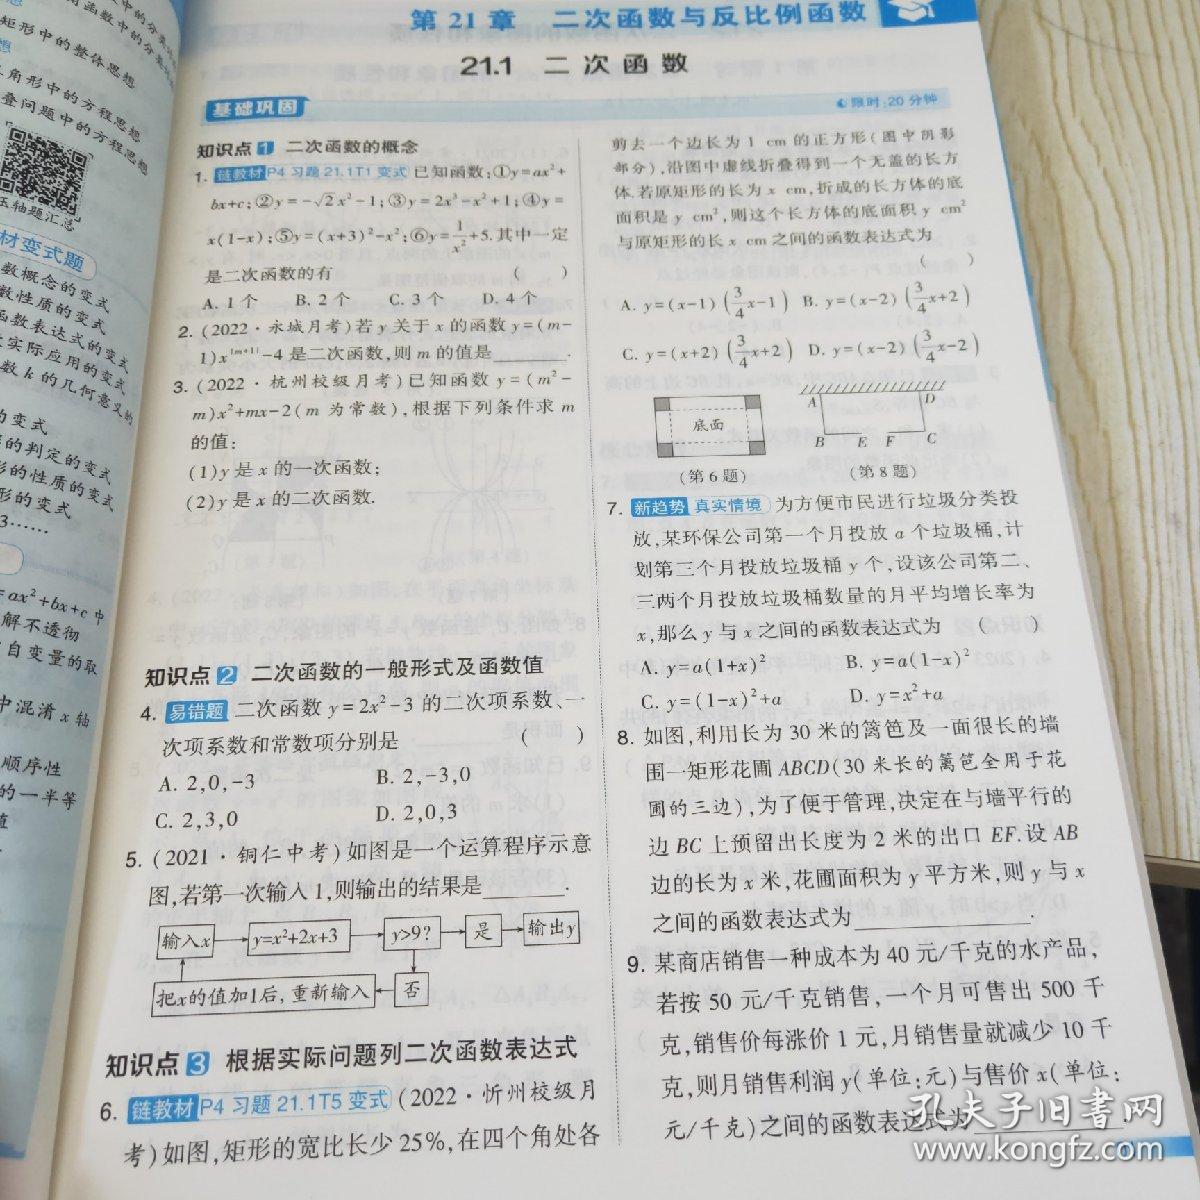 第 21 章　二次函数与反比例函数
21.1　二次函数
基础巩固
限时:20 分钟
知识点 1　二次函数的概念
1. 链教材 P4 习题 21.1T1 变式 已知函数:①y=ax²+
bx+c;②y=-√2x²-1;③y=2x³-x²+1;④y=
x(1-x);⑤y=(x+3)²-x²;⑥y=1/x²+5.其中一定
是二次函数的有 (　　)
A. 1 个　B. 2 个　C. 3 个　D. 4 个
2. (2022·永城月考)若 y 关于 x 的函数 y=(m-
1)x^|m+1|-4 是二次函数,则 m 的值是______.
3. (2022·杭州校级月考)已知函数 y=(m²-
m)x²+mx-2(m 为常数),根据下列条件求 m
的值:
(1)y 是 x 的一次函数;
(2)y 是 x 的二次函数.
知识点 2　二次函数的一般形式及函数值
4. 易错题 二次函数 y=2x²-3 的二次项系数、一
次项系数和常数项分别是 (　　)
A. 2,0,-3　B. 2,-3,0
C. 2,3,0　D. 2,0,3
5. (2021·铜仁中考)如图是一个运算程序示意
图,若第一次输入1,则输出的结果是______.
输入x　y=x²+2x+3　y>9?　是　输出y
把x的值加1后,重新输入　否
知识点 3　根据实际问题列二次函数表达式
6. 链教材 P4 习题 21.1T5 变式 (2022·忻州校级月
考)如图,矩形的宽比长少25%,在四个角处各
剪去一个边长为 1 cm 的正方形(图中阴影
部分),沿图中虚线折叠得到一个无盖的长方
体.若原矩形的长为 x cm,折成的长方体的底
面积是 y cm²,则这个长方体的底面积 y cm²
与原矩形的长 x cm 之间的函数表达式为
(　　)
A. y=(x-1)(3/4x-1)　B. y=(x-2)(3/4x+2)
C. y=(x+2)(3/4x+2)　D. y=(x-2)(3/4x-2)
底面
A　D
B　E　F　C
(第 6 题)　(第 8 题)
7. 新趋势 真实情境 为方便市民进行垃圾分类投
放,某环保公司第一个月投放 a 个垃圾桶,计
划第三个月投放垃圾桶 y 个,设该公司第二、
三两个月投放垃圾桶数量的月平均增长率为
x,那么 y 与 x 之间的函数表达式为 (　　)
A. y=a(1+x)²　B. y=a(1-x)²
C. y=(1-x)²+a　D. y=x²+a
8. 如图,利用长为 30 米的篱笆及一面很长的墙
围一矩形花圃 ABCD(30 米长的篱笆全用于花
圃的三边),为了便于管理,决定在与墙平行的
边 BC 上预留出长度为 2 米的出口 EF.设 AB
边的长为 x 米,花圃面积为 y 平方米,则 y 与 x
之间的函数表达式为______.
9. 某商店销售一种成本为 40 元/千克的水产品,
若按 50 元/千克销售,一个月可售出 500 千
克,销售价每涨价 1 元,月销售量就减少 10 千
克,则月销售利润 y(单位:元)与售价 x(单位:
元/千克)之间的函数表达式为
矩形中的整体思想
角形中的方程思想
叠问题中的方程思想
五轴题汇总
材变式题
数概念的变式
数性质的变式
函数表达式的变式
实际应用的变式
数 k 的几何意义的
的变式
的判定的变式
形的性质的变式
形的变式
3……
=ax²+bx+c 中
解不透彻
自变量的取
中混淆 x 轴
顺序性
的一半等
值
孔夫子旧书网
www.kongfz.com